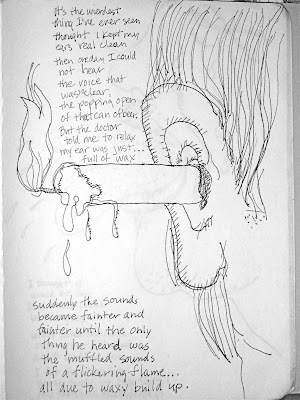 It's the weirdest
thing I've ever seen
thought I kept my
ears real clean
then one day I could
not hear
the voice that
was so clear,
the popping open
of that can of beer.
But the doctor
told me to relax
my ear was just...
full of wax
suddenly the sounds
became fainter and
fainter until the only
thing he heard was
the muffled sounds
of a flickering flame...
all due to waxy build up.